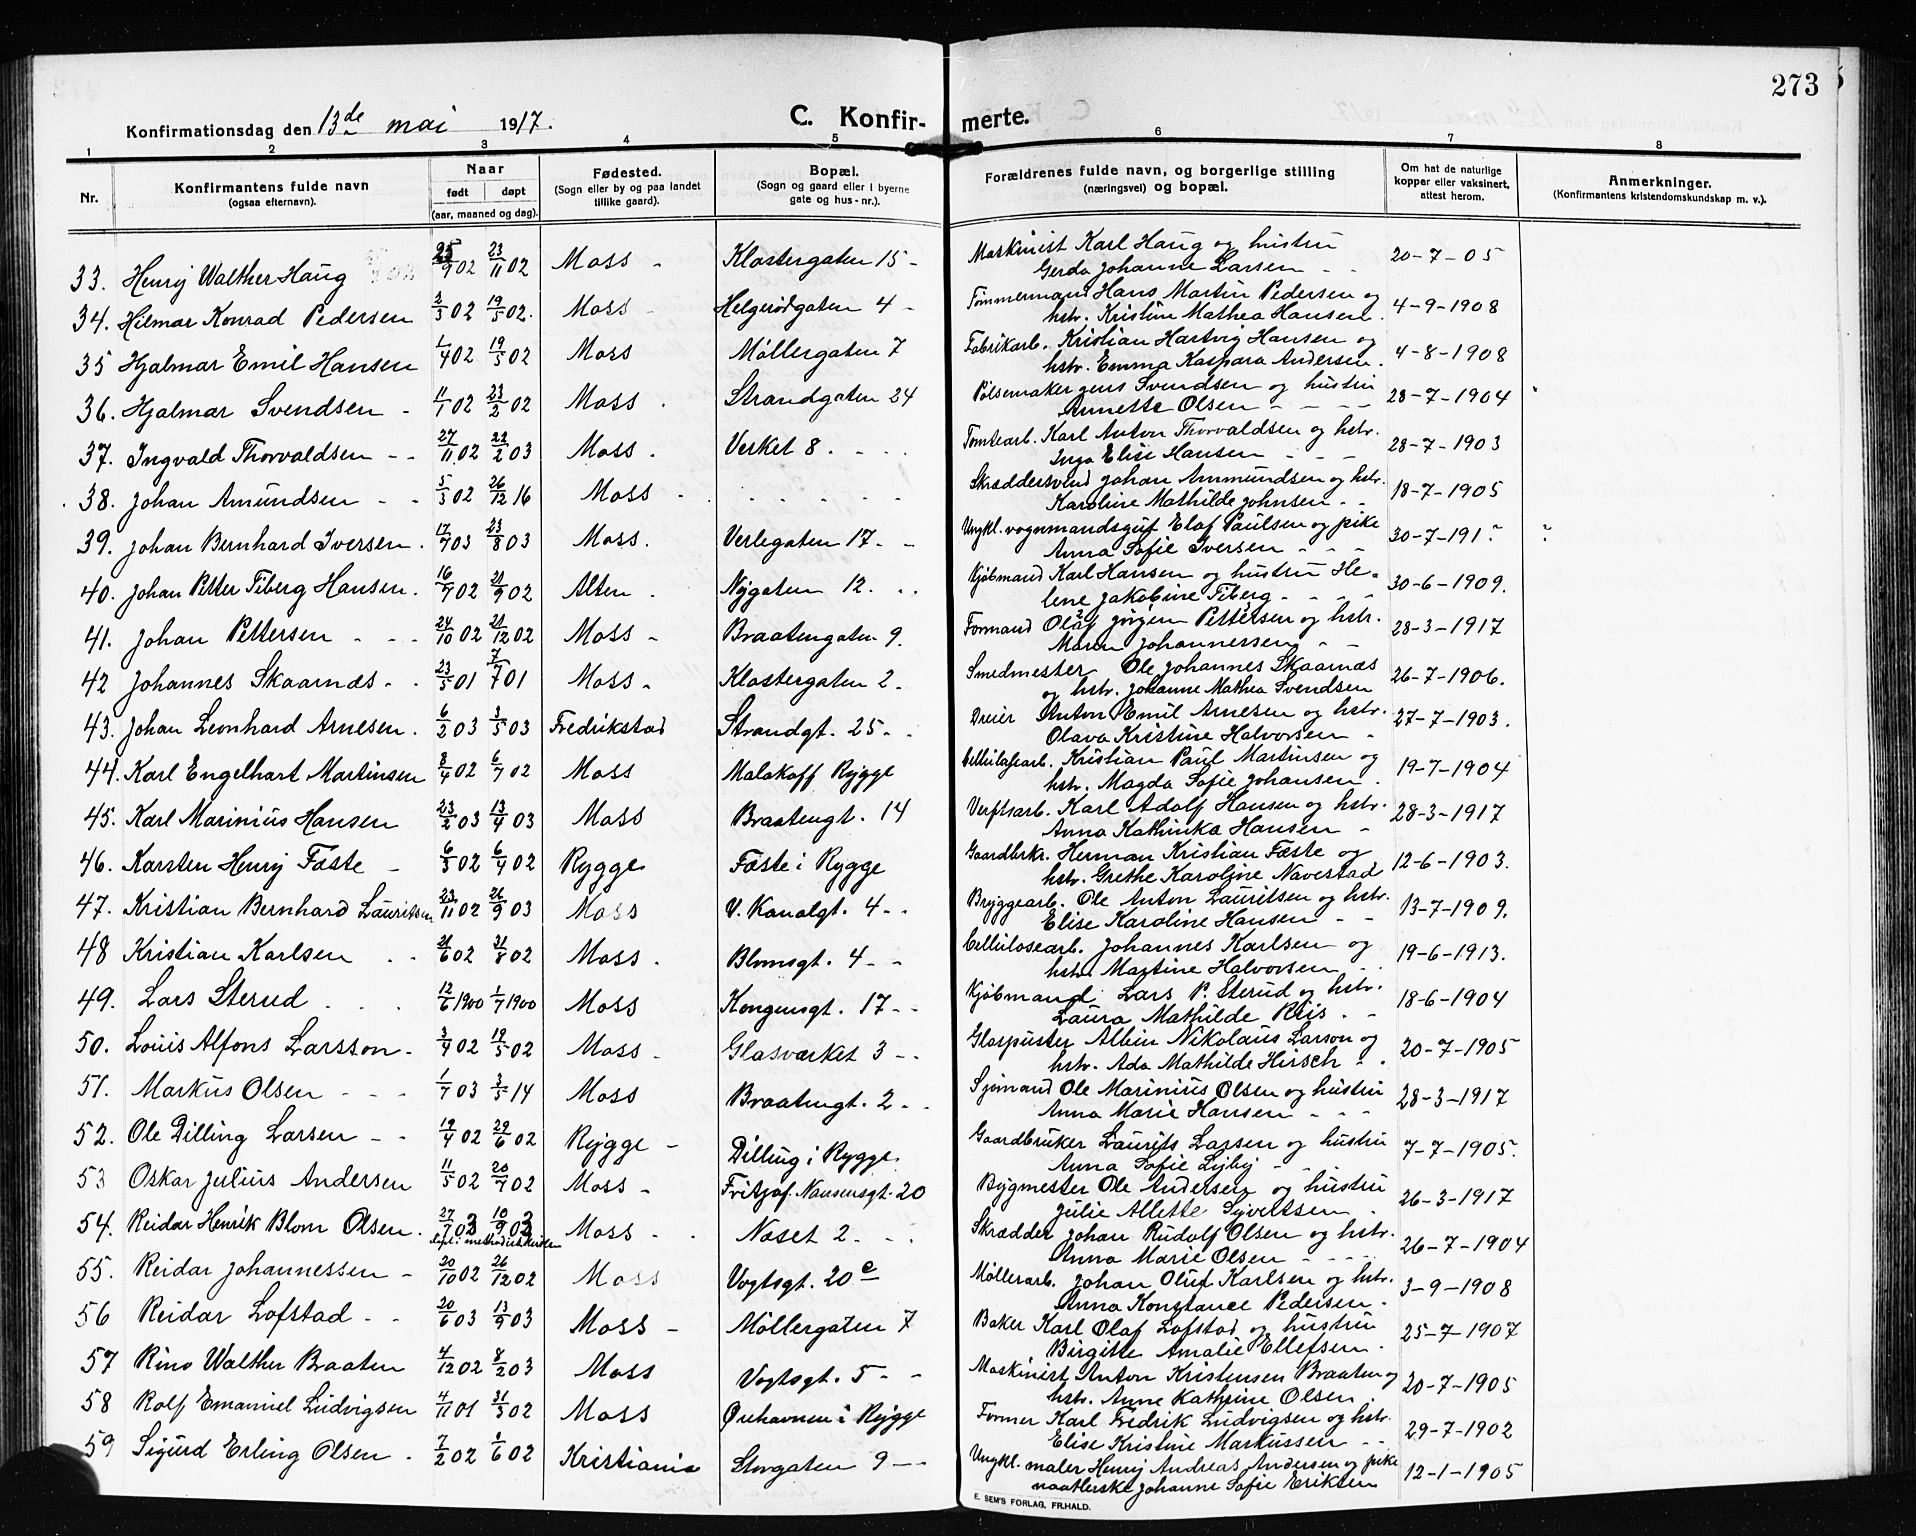 273
Konfirmationsdag den 13de mai 1917.
C. Konfir- merte.
1 2 3 4 5 6 7 8
Nr.
Konfirmantens fulde navn
(ogsaa efternavn).
Naar
født døpt
(aar, maaned og dag).
Fødested.
(Sogn eller by og paa landet
tillike gaard).
Bopæl.
(Sogn og gaard eller i byerne
gate og hus-nr.).
Forældrenes fulde navn, og borgerlige stilling
(næringsvei) og bopæl.
Om hat de naturlige
kopper eller vaksinert,
attest herom.
Anmerkninger.
(Konfirmantens kristendomskundskap m. v.).
33. Henrij Walther Haug 25/9 02 23/11 02 Moss - Klostergaten 15 - Maskinist Karl Haug og hustru 20-7-05
Gerda Johanne Larsen - -
34. Hilmar Konrad Pedersen 2/3 02 19/5 02. Moss - Helgerødgaten 4 - Tømmermand Hans Martin Pedersen og 4-9-1908
hstr. Kristine Mathea Hansen.
35 Hjalmar Emil Hansen 1/4 02 19/5 02 Moss Møllergaten 7 Fabrikarb. Kristian Hartvig Hansen og 4-8-1908
hstr. Emma Kaspara Andersen.
36. Hjalmar Svendsen - 11/1 02 23/2 02 Moss . Strandgaten 24 Pølsemaker Jens Svendsen og hustru 28-7-1904
Annette Olsen - - - -
37. Ingvald Thorvaldsen - - 27/11 02 22/2 03 Moss . Verket 8 . - - . Tomtearb. Karl Anton Thorvaldsen og hstr. 28-7-1903
Inga Elise Hansen - - -
38. Johan Amundsen - - 5/3 02 26/12 16 Moss - - - - - - Skræddersvend Johan Ammundsen og hstr. 18-7-1905
Karoline Mathilde Johnsen - -
39. Johan Bernhard Iversen . 17/7 03 23/8 03 Moss. Verlegaten 17 - - Ungkl. vognmandsgut Elaf Paulsen og pike 30-7-191? ?
Anna Sofie Iversen - - -
40. Johan Petter Fiberg Hansen. 16/7 02 21/9 02 Alten . Nygaten 12. . . Kjøbmand Karl Hansen og hustru He- 30-6-1909.
lene Jakobine Fiberg - - - -
41. Johan Pettersen - - - 24/10 02 21/12 02 Moss - Braatengaten 9. Formand Olaf Jørgen Pettersen og hstr. 28-3-1917
Maren Johannersen - -
42 Johannes Skaarnæs - - 23/5 01 7/7 01 Moss - Klostergaten 2 - Smedmester Ole Johannes Skaarnæs 26-7-1906.
og hstr. Johanne Mathea Svendsen
43. Johan Leonhard Arnesen . 6/2 03 3/5 03 Fredrikstad Strandgt. 25 - - Dreier Anton Emil Arnesen og hstr. 27-7-1903.
Olava Kristine Halvorsen -
44. Karl Engelhart Martinsen 8/4 02 6/7 02 Moss Malakoff Rygge Cellulosearb. Kristian Paul Martinsen og 19-7-1904
hstr. Magda Sofie Johansen .
45. Karl Marinius Hansen 23/2 03 13/4 03 Moss Braatengt. 14 Verftsarb. Karl Adolf Hansen og hstr. 28-3-1917
Anna Kathinka Hansen -
46. Karsten Henrij Faste - 6/3 02 6/4 02 Rygge Faste i Rygge Gaardbrkr. Herman Kristian Fæste og 12-6-1903.
hstr. Grethe Karoline Navestad
47. Kristian Bernhard Lauritsen 23/11 02 26/9 03 Moss V. Kanalgt. 4 - - Bryggearb. Ole Anton Lauritsen og hstr. 13-7-1909.
Elise Karoline Hansen - -
48 Kristian Karlsen . . 21/6 02 31/8 02 Moss . Blomsgt. 4 - - Cellulosearb. Johannes Karlsen og 19-6-1913.
hstr. Martine Halvorsen - -
49. Lars Sterud . . . 12/6 1900 1/7 1900 Moss Kongensgt. 17 - - Kjøbmand Lars P. Sterud og hstr. 18-6-1904
Laura Mathilde Riis - -
50. Louis Alfons Larsson - 3/4 02 19/5 02 Moss - Glasværket 3 - - Glaspuster Albin Nikolaus Larson og 20-7-1905
hstr. Ada Mathilde Hirsch - .
51. Markus Olsen - - - 1/7 03 3/5 14 Moss Braatengt. 2 - - Sjømand Ole Marinius Olsen og hustru 28-3-1917
Anna Marie Hansen - - -
52. Ole Dilling Larsen - - 19/4 02 29/6 02 Rygge - Dilling i Rygge. Gaardbruker Laurits Larsen og hustru 7-7-1905.
Anna Sofie Lyby - -
53 Oskar Julius Andersen 11/5 02 20/7 02 Moss - Fritjof Nansensgt. 20 Bygmester Ole Andersen og hustru 26-3-1917
Julie Allette Syvertsen .
54. Reidar Henrik Blom Olsen. 27/7 03 10/9 03 Moss - - Næset 2 - - - Skrædder Johan Rudolf Olsen og hstr. 26-7-1904
døpt i methodistkirken
Anna Marie Olsen - - - -
55. Reidar Johannessen - 20/10 02 26/12 02 Moss Vogtsgt. 20 c Møllerarb. Johan Oluf Karlsen og hstr. 3-9-1908
Anna Konstance Pedersen -
56 Reidar Lofstad - - 20/6 03 13/9 03 Moss - Møllergaten 7 Baker Karl Olaf Lofstad og hustru 25-7-1907
Birgitte Amalie Ellefsen -
57 Rino Walther Braaten 4/12 02 8/2 03 Moss Vogtsgt. 5 - - Maskinist Anton Kristensen Braaten og 20-7-1905
hstr. Anne Kathrine Olsen.
58 Rolf Emanuel Ludvigsen 4/11 01 31/3 02 Moss Ørehavnen i Rygge Former Karl Fredrik Ludvigsen og hstr. 29-7-1902
Elise Kristine Markussen - -
59 Sigurd Erling Olsen . 7/2 02 1/6 02 Kristiania Storgaten 9 - - Ungkl. maler Henrij Andreas Andersen og pike 12-1-1905
naatlerske Johanne Sofie Eriksen
E. SEM'S FORLAG, FR.HALD.